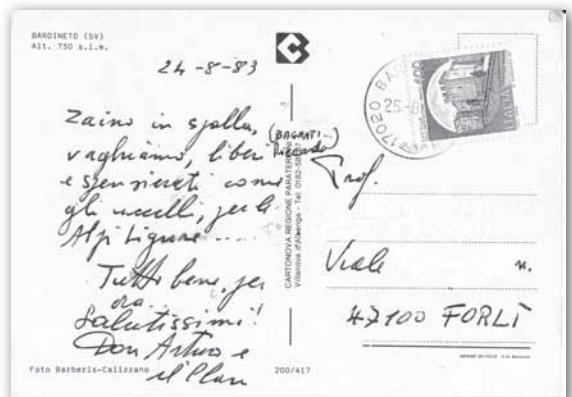 BARDINETO (SV)
Alt. 750 s.l.m.
24-8-83
Zaino in spalla,
(BAGNATI...)
vaghiamo, liberi
e spensierati come
gli uccelli, per le
Alpi Liguri ....
Tutto bene, per
ora...
Salutissimi!
Don Arturo e
il Clan
Foto Barberis-Calizzano
200/417
CARTONOVA REGIONE
Villanova d'Albenga - Tel. 0182-58
17020 BA
25-8
400
ITALIA
Riccardo
Prof.
Viale n.
47100 FORLÌ